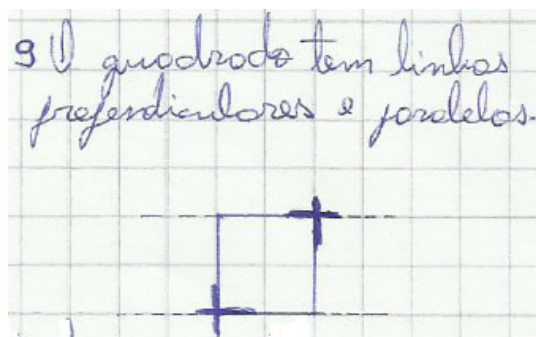 9 O quadrado tem linhas
prependiculares e paralelas.